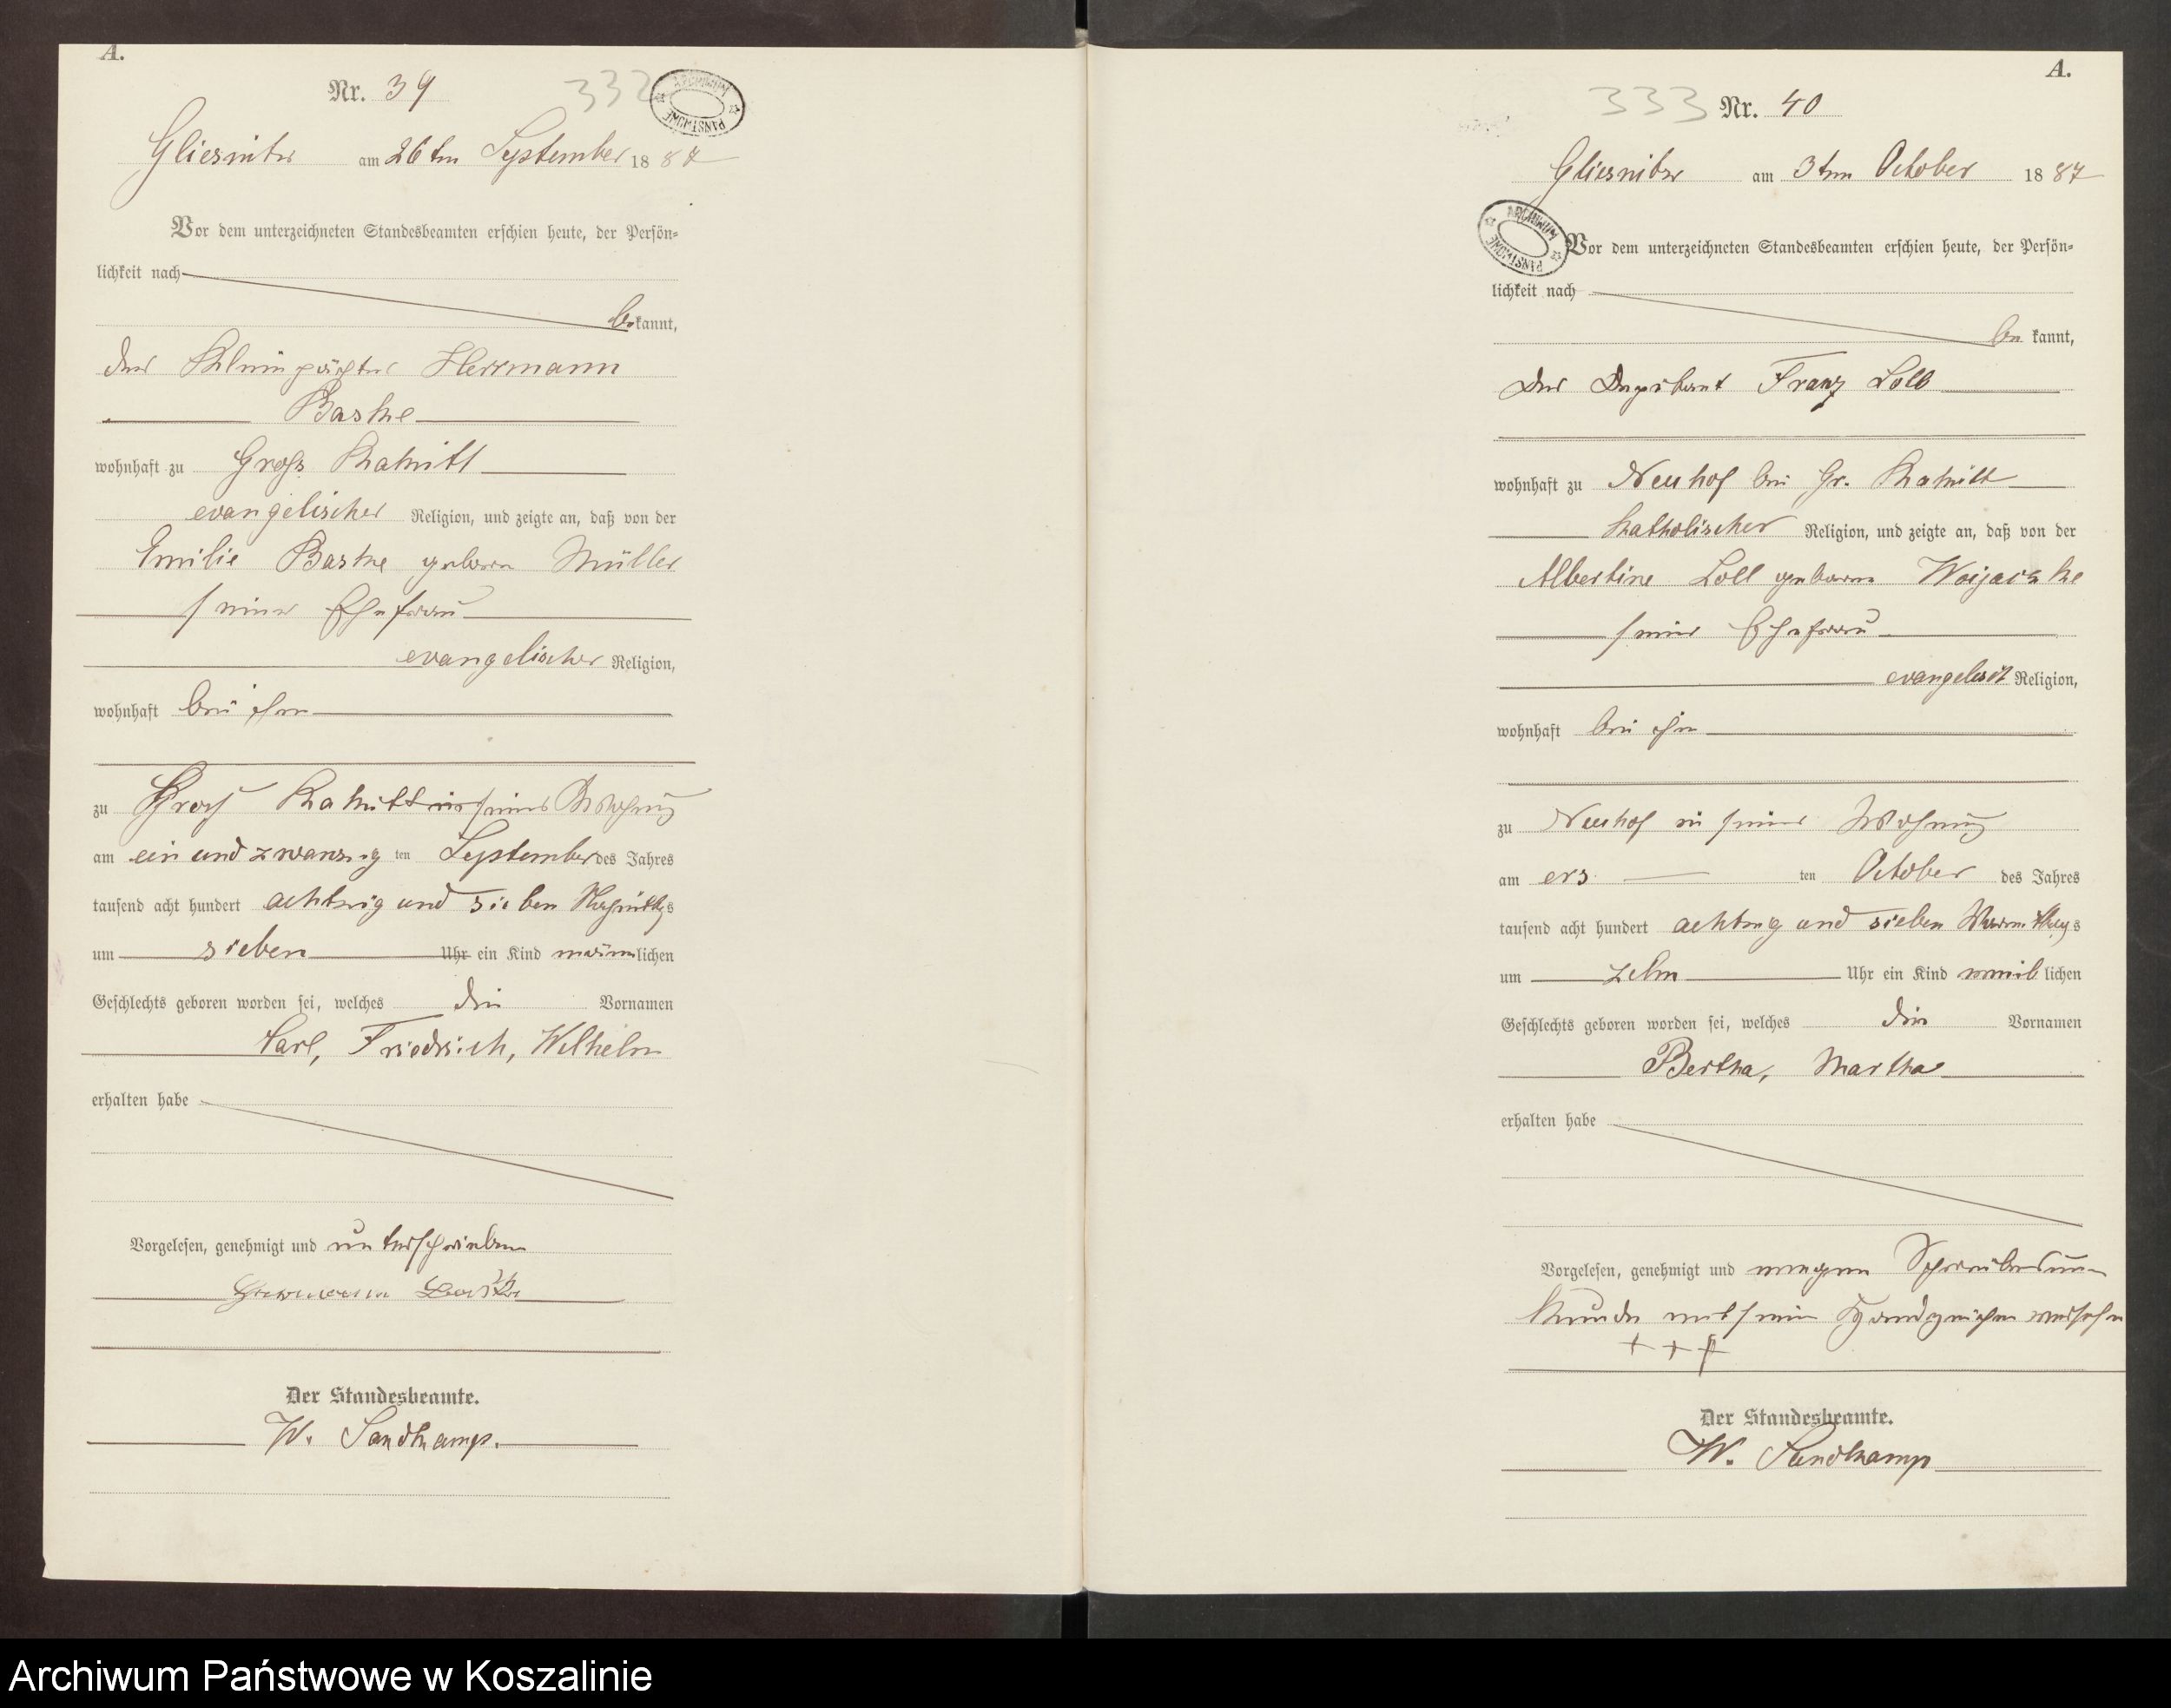 A.
Nr. 39
332
ARCHIWUM PAŃSTWOWE
Gliesnitz am 26ten September 1887
Vor dem unterzeichneten Standesbeamten erschien heute, der Persön-
lichkeit nach
bekannt,
der Kleinpächter Herrmann
Baske
wohnhaft zu Gross Rakitt
evangelischer Religion, und zeigte an, daß von der
Emilie Baske geboren Müller
seiner Ehefrau
evangelischer Religion,
wohnhaft bei ihm
zu Gross Rakitt in seiner Wohnung
am ein und zwanzig ten September des Jahres
tausend acht hundert achtzig und sieben Nachmittags
um sieben Uhr ein Kind männlichen
Geschlechts geboren worden sei, welches die Vornamen
Carl, Friedrich, Wilhelm
erhalten habe
Vorgelesen, genehmigt und unterschrieben
Hermann
Der Standesbeamte.
W. Sandkamp.
A.
333 Nr. 40
Gliesnitz am 3ten October 1887
ARCHIWUM PAŃSTWOWE
Vor dem unterzeichneten Standesbeamten erschien heute, der Persön-
lichkeit nach
be kannt,
Der Deputant Franz Loll
wohnhaft zu Neuhof bei Gr. Rakitt
katholischer Religion, und zeigte an, daß von der
Albertine Loll geborne
seiner Ehefrau
evangelisch Religion,
wohnhaft bei ihm
zu Neuhof in seiner Wohnung
am ers ten October des Jahres
tausend acht hundert achtzig und sieben Vormittags
um zehn Uhr ein Kind weiblichen
Geschlechts geboren worden sei, welches die Vornamen
Bertha, Martha
erhalten habe
Vorgelesen, genehmigt und wegen Schreibensun-
kunde mit sein Handzeichen versehen
+ + +
Der Standesbeamte.
W. Sandkamp
Archiwum Państwowe w Koszalinie